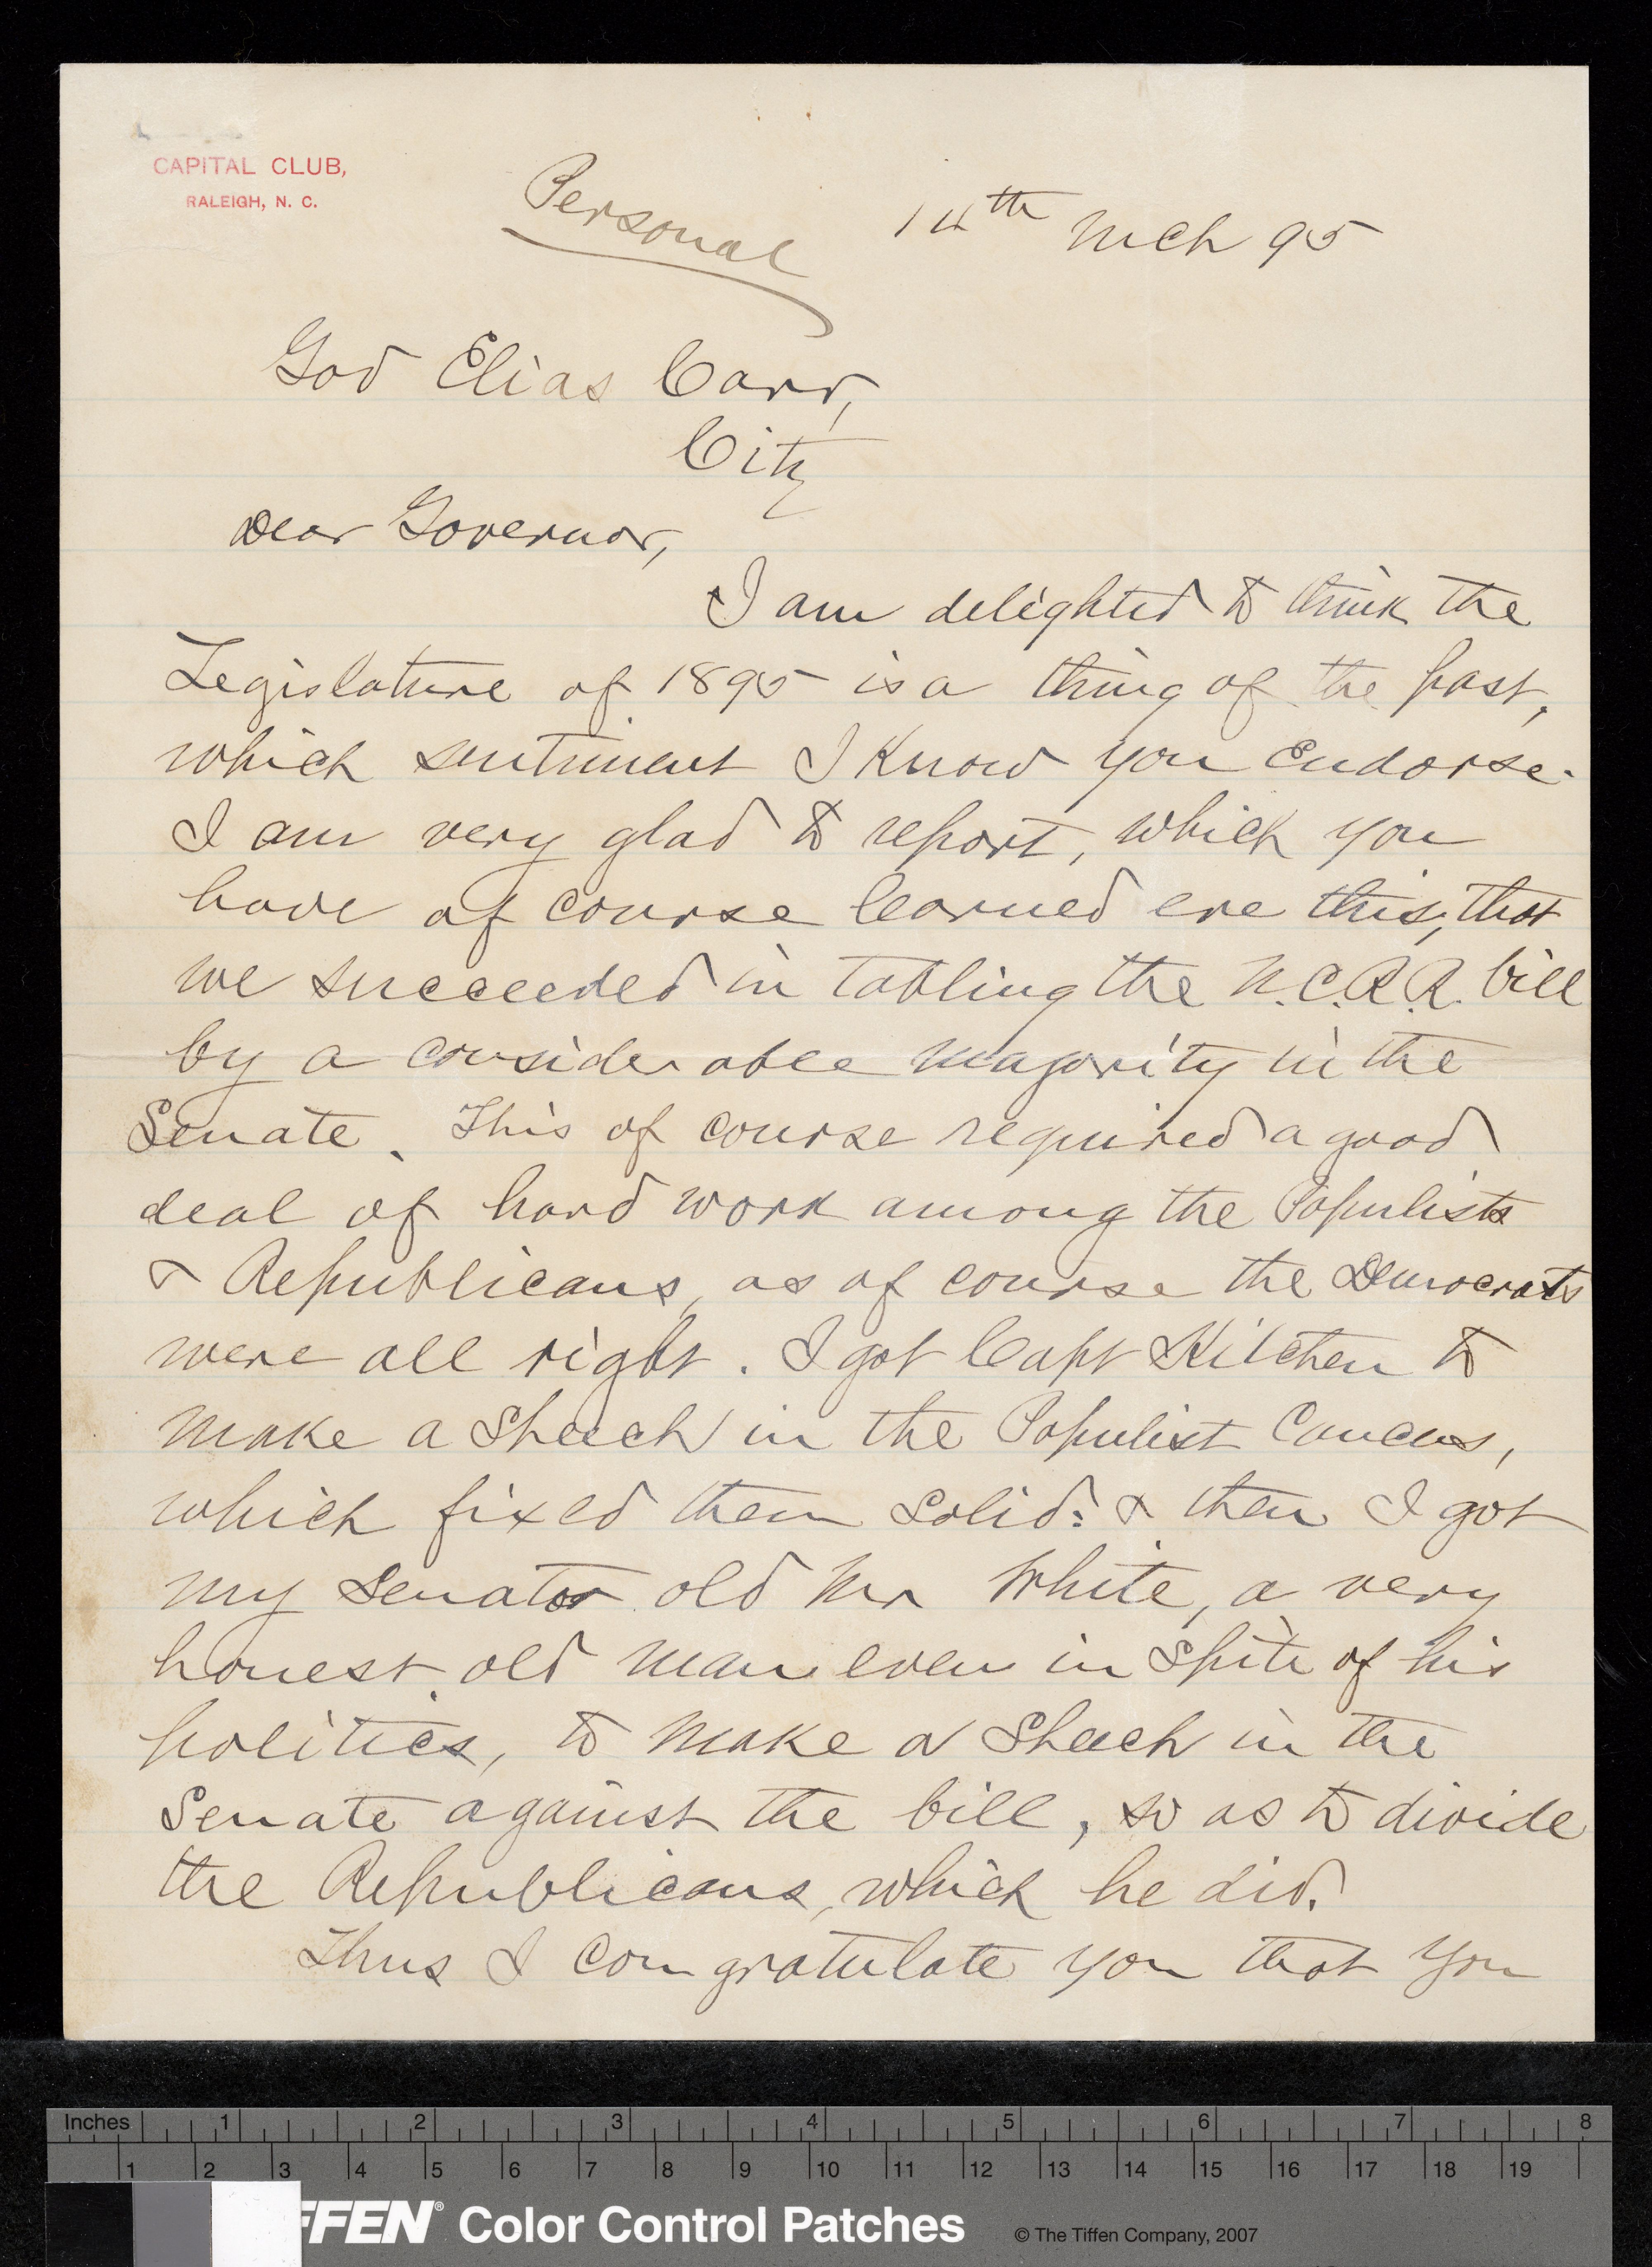 CAPITAL CLUB,
RALEIGH, N. C.
Personal
14th Mch 95
Gov Elias Carr,
City
Dear Governor,
I am delighted to think the
Legislature of 1895 is a thing of the past,
which sentiment I know you endorse.
I am very glad to report, which you
have of course learned ere this, that
we succeeded in tabling the N.C.R.R. bill
by a considerable majority in the
Senate. This of course required a good
deal of hard work among the Populists
& Republicans, as of course the Democrats
were all right. I got Capt Kitchen to
make a speech in the Populist Caucus,
which fixed them solid: & then I got
my Senator old Mr White, a very
honest old man even in spite of his
politics, to make a speech in the
Senate against the bill, so as to divide
the Republicans, which he did.
Thus I congratulate you that you
Inches 1 2 3 4 5 6 7 8
1 2 3 4 5 6 7 8 9 10 11 12 13 14 15 16 17 18 19
FFEN® Color Control Patches © The Tiffen Company, 2007